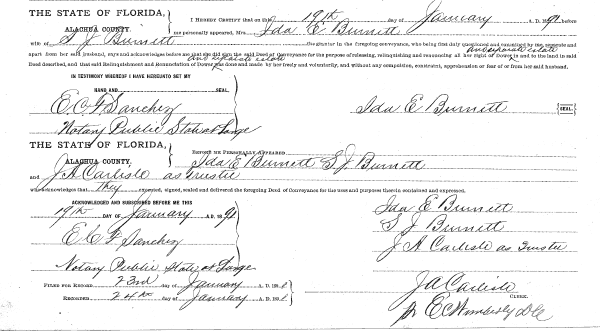 THE STATE OF FLORIDA,
ALACHUA COUNTY.
I HEREBY CERTIFY that on this 19th day of January A. D. 1891 before
me personally appeared, Mrs. Ida E Burnett
wife of S J Burnett the grantor in the foregoing conveyance, who being first duly questioned and examined by me separate and
and separate estate
apart from her said husband, may acknowledge before me that she did sign the said Deed of Conveyance for the purpose of releasing, relinquishing and renouncing all her right of Dower in and to the land in said
and separate estate
Deed described, and that said Relinquishment and Renunciation of Dower was done and made by her freely and voluntarily, and without any compulsion, constraint, apprehension or fear of or from her said husband.
IN TESTIMONY WHEREOF I HAVE HEREUNTO SET MY
HAND AND SEAL.
E. C. F. Sanchez
Ida E Burnett (SEAL)
Notary Public State at Large
THE STATE OF FLORIDA,
ALACHUA COUNTY.
BEFORE ME PERSONALLY APPEARED
Ida E Burnett S J Burnett
and J A Carlisle as trustee
who acknowledges that they executed, signed, sealed and delivered the foregoing Deed of Conveyance for the uses and purposes therein contained and expressed.
ACKNOWLEDGED AND SUBSCRIBED BEFORE ME THIS
19th DAY OF January A. D. 1891
Ida E Burnett
S J Burnett
E C F Sanchez
J A Carlisle as Trustee
Notary Public State at Large
FILED FOR RECORD 23rd day of January A. D. 1891
J A Carlisle
CLERK.
RECORDED 24th day of January A. D. 1891
pr E C Wimberly D C